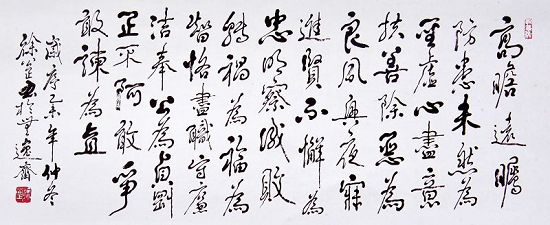 高瞻遠矚
防患未然為
聖虛心盡意
扶善除惡為
良夙興夜寐
進賢不懈為
忠明察成敗
轉禍為福為
智恪盡職守廉
洁奉公為貞剛
正不阿敢爭
敢諫為直
歲序乙未年仲冬
徐書於逸齋